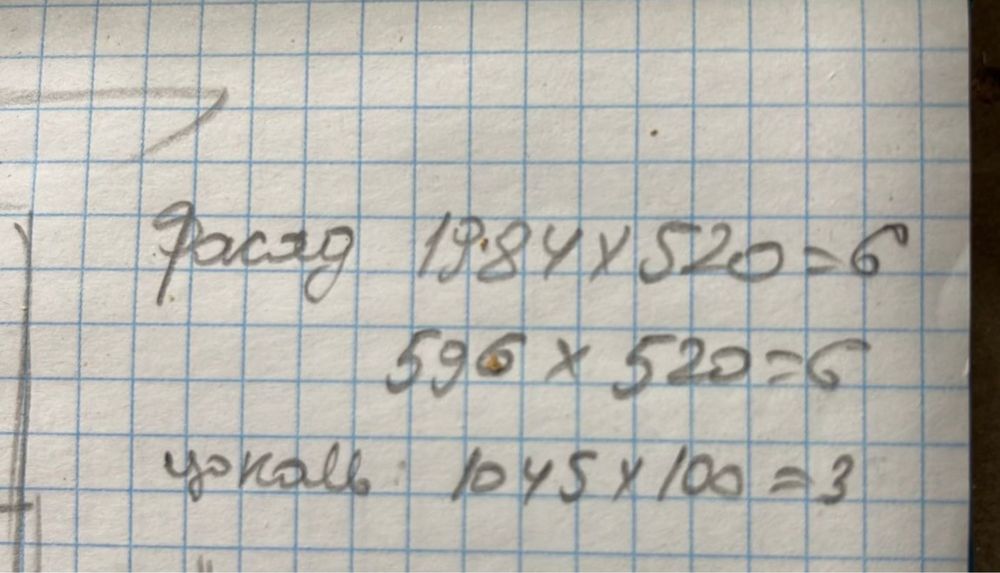 фасад 1984 x 520 = 6
596 x 520 = 6
цоколь 1045 x 100 = 3